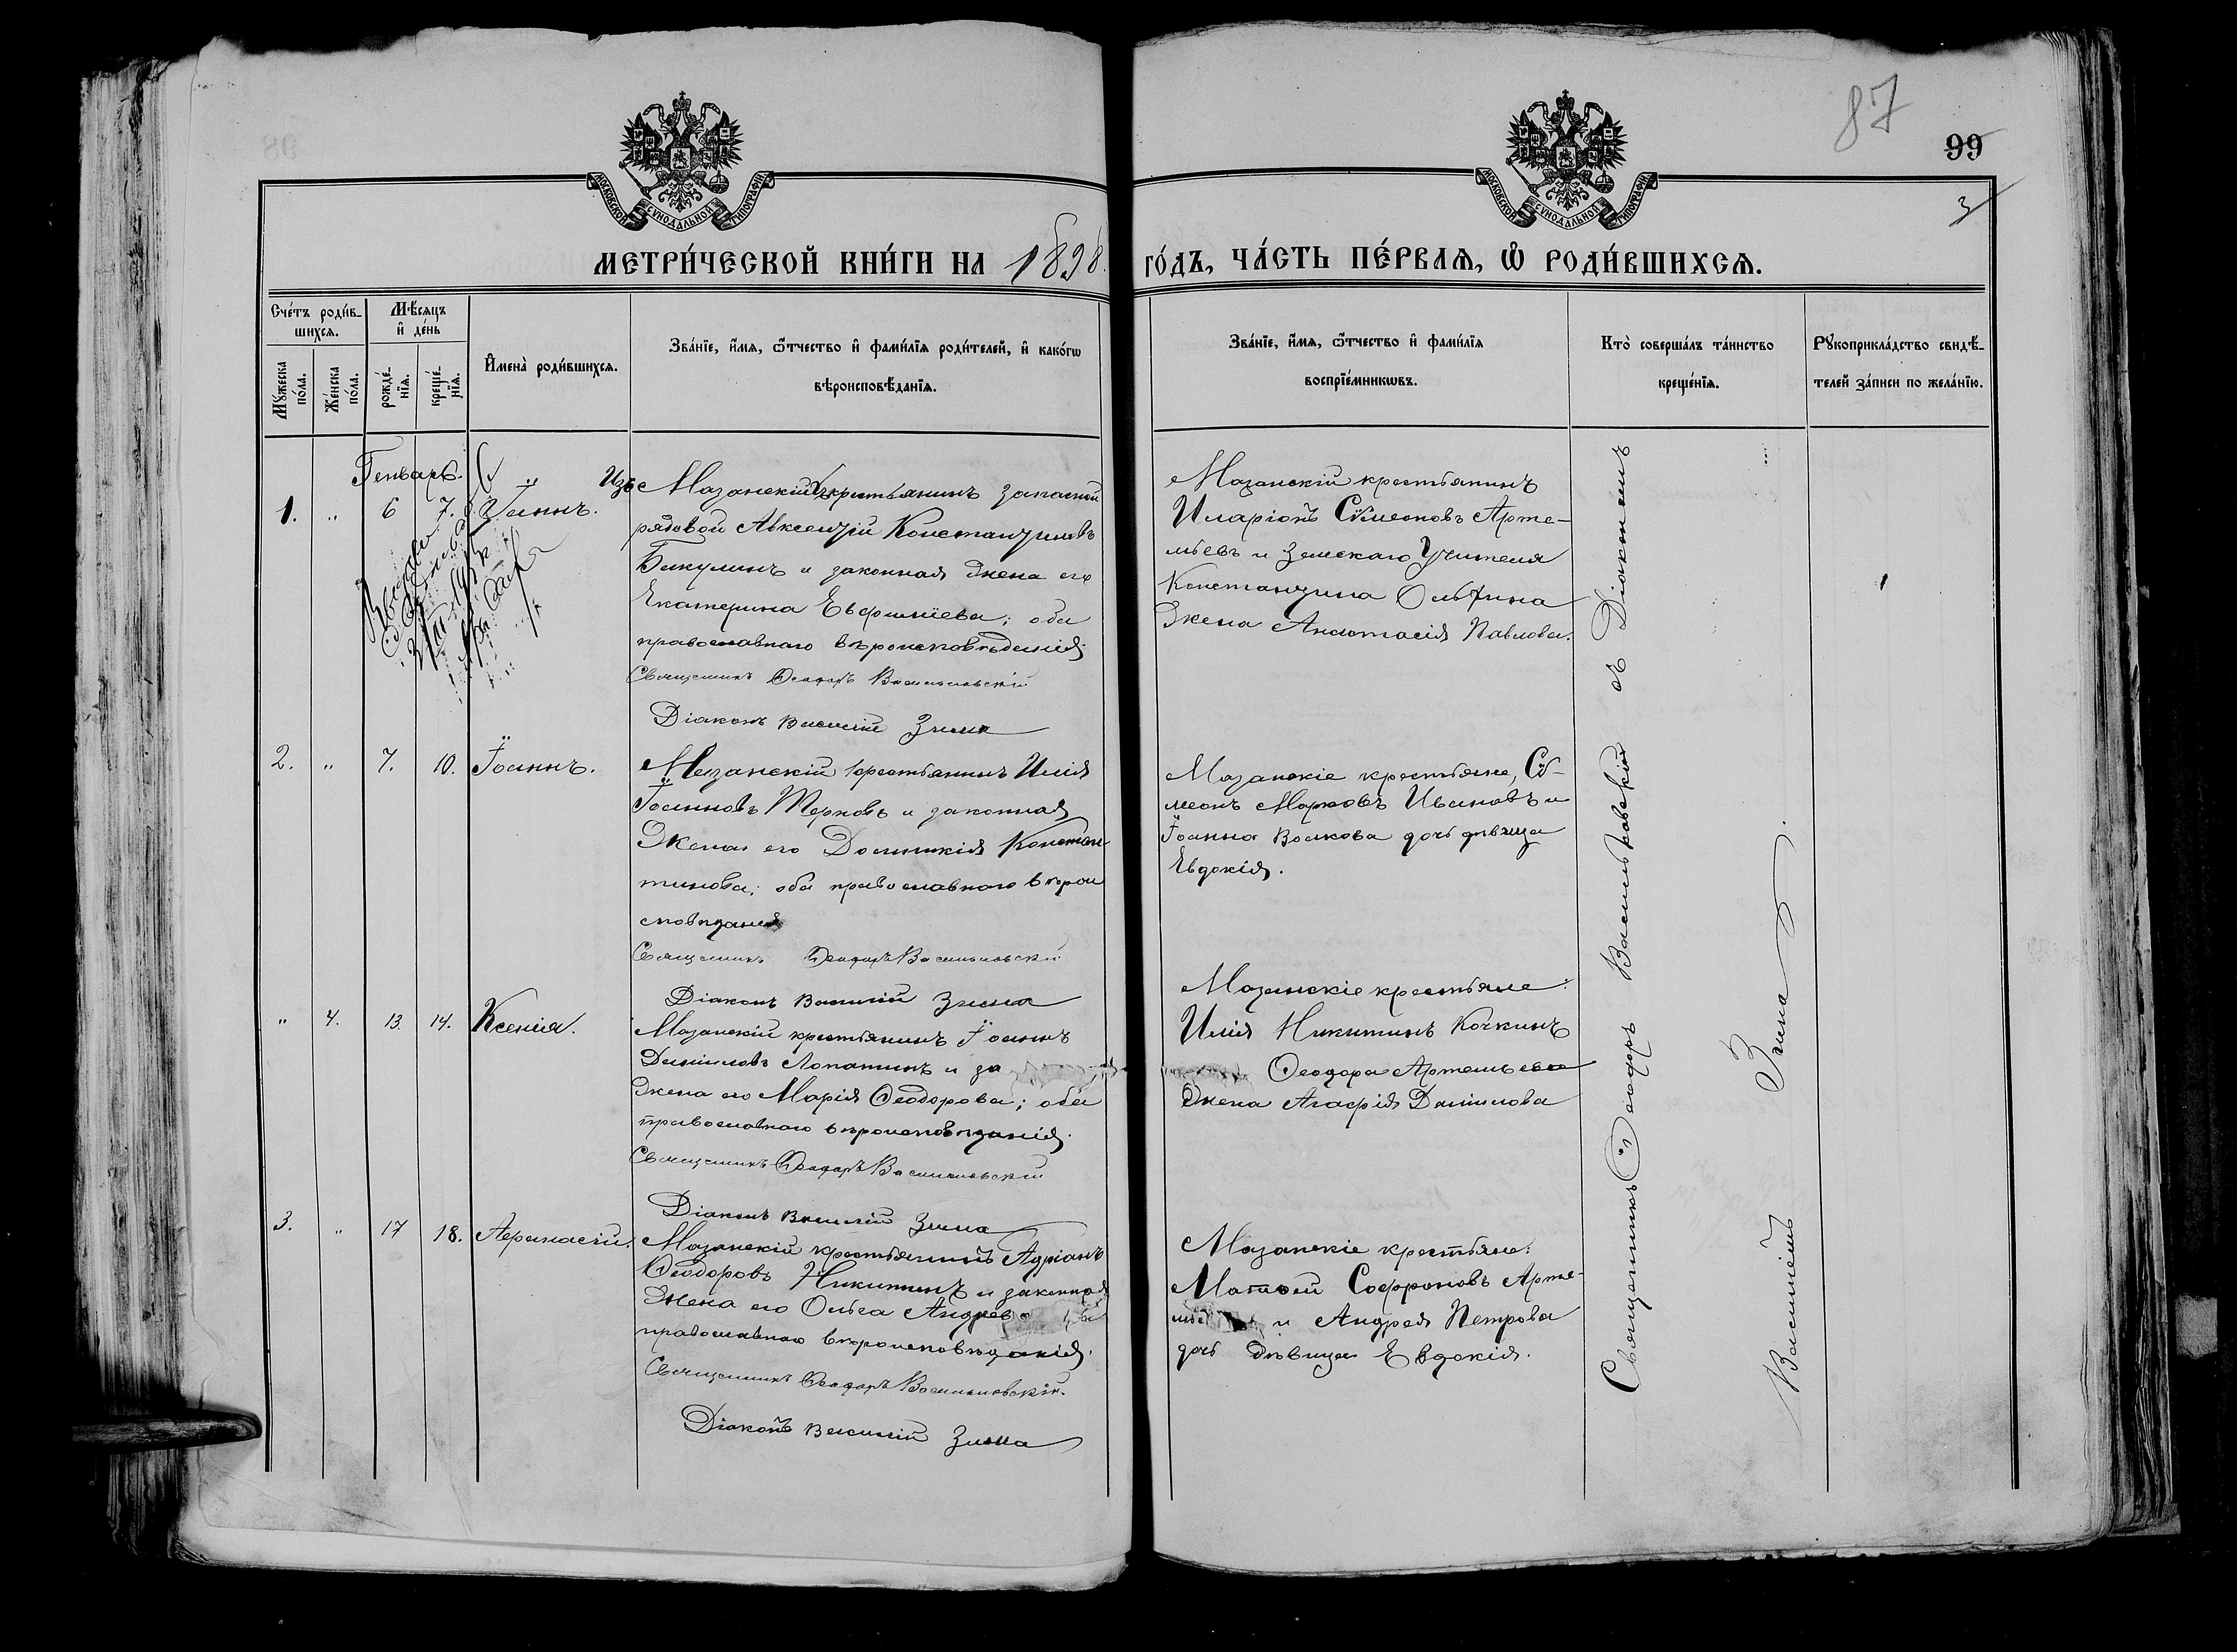 87
99
3
МОСКОВСКОЙ СѴНОДАЛЬНОЙ ТИПОГРАФІИ
МОСКОВСКОЙ СѴНОДАЛЬНОЙ ТИПОГРАФІИ
МЕТРИ́ЧЕСКОЙ КНИ́ГИ НА 1898
ГО́ДЪ, ЧА́СТЬ ПЕ́РВАѦ, Ѡ҆ РОДИ́ВШИХСѦ.
Сче́тъ роди́в-
шихсѧ.
Мѣ́сѧцъ
и҆ де́нь
Мꙋ́жеска по́ла.
Же́нска по́ла.
рожде́-
нїѧ.
креще́-
нїѧ.
И҆мена̀ роди́вшихсѧ.
Зва́нїе, и҆́мѧ, ѻ҆́тчество и҆ фами́лїѧ роди́телей, и҆ како́гѡ
вѣроисповѣ́данїѧ.
Зва́нїе, и҆́мѧ, ѻ҆́тчество и҆ фами́лїѧ
воспрїе́мникѡвъ.
Кто̀ соверша́лъ та́инство
креще́нїѧ.
Рꙋкоприкла́дство свидѣ́-
телей за́писи по жела́нїю.
Генварь.
1. " 6 7. Іоаннъ.
Изъ Мазанскій крестьянинъ запасной
рядовой Авксентій Константиновъ
Бакулинъ и законная жена его
Екатерина Евфиміева; оба
православнаго вѣроисповѣданія
Священникъ Ѳеодоръ Васильковскій
Діаконъ Василій Зима
Мазанскій крестьянинъ
Иларіонъ Сѵмеоновъ Арте-
мьевъ и Земскаго Учителя
Константина
Жена Анастасія Павлова.
2. " 7. 10. Іоаннъ.
Мазанскій крестьянинъ Илія
Іоанновъ Терновъ и законная
Жена его Домникія Констан-
тинова; оба православнаго вѣрои
сповѣданія
Священникъ Ѳеодоръ Васильковскій
Діаконъ Василій Зима
Мазанскіе крестьяне, Сѵ-
меонъ Марковъ Ивановъ и
Іоанна Волкова дочь дѣвица
Евдокія.
" 4. 13. 14. Ксенія.
Мазанскій крестьянинъ Іоаннъ
Даніиловъ Лопатинъ и за
Жена его Марія Ѳеодорова; оба
православнаго вѣроисповѣданія.
Священникъ Ѳеодоръ Васильковскій
Діаконъ Василій Зима
Мазанскіе крестьяне:
Илія Никитинъ Кочкинъ
Ѳеодора Артемьева
Жена Агафія Даніилова
3. " 17 18. Аѳанасій.
Мазанскій крестьянинъ Адріанъ
Ѳеодоровъ Никитинъ и законная
Жена его Ольга Андреева
православнаго вѣроисповѣданія.
Священникъ Ѳеодоръ Васильковскій.
Діаконъ Василій Зима
Мазанскіе крестьяне:
Матѳей Софроновъ Арте-
и Андрея Петрова
дочь дѣвица Евдокія.
Священникъ Ѳеодоръ Васильковскій съ Діакономъ
Василіемъ Зима